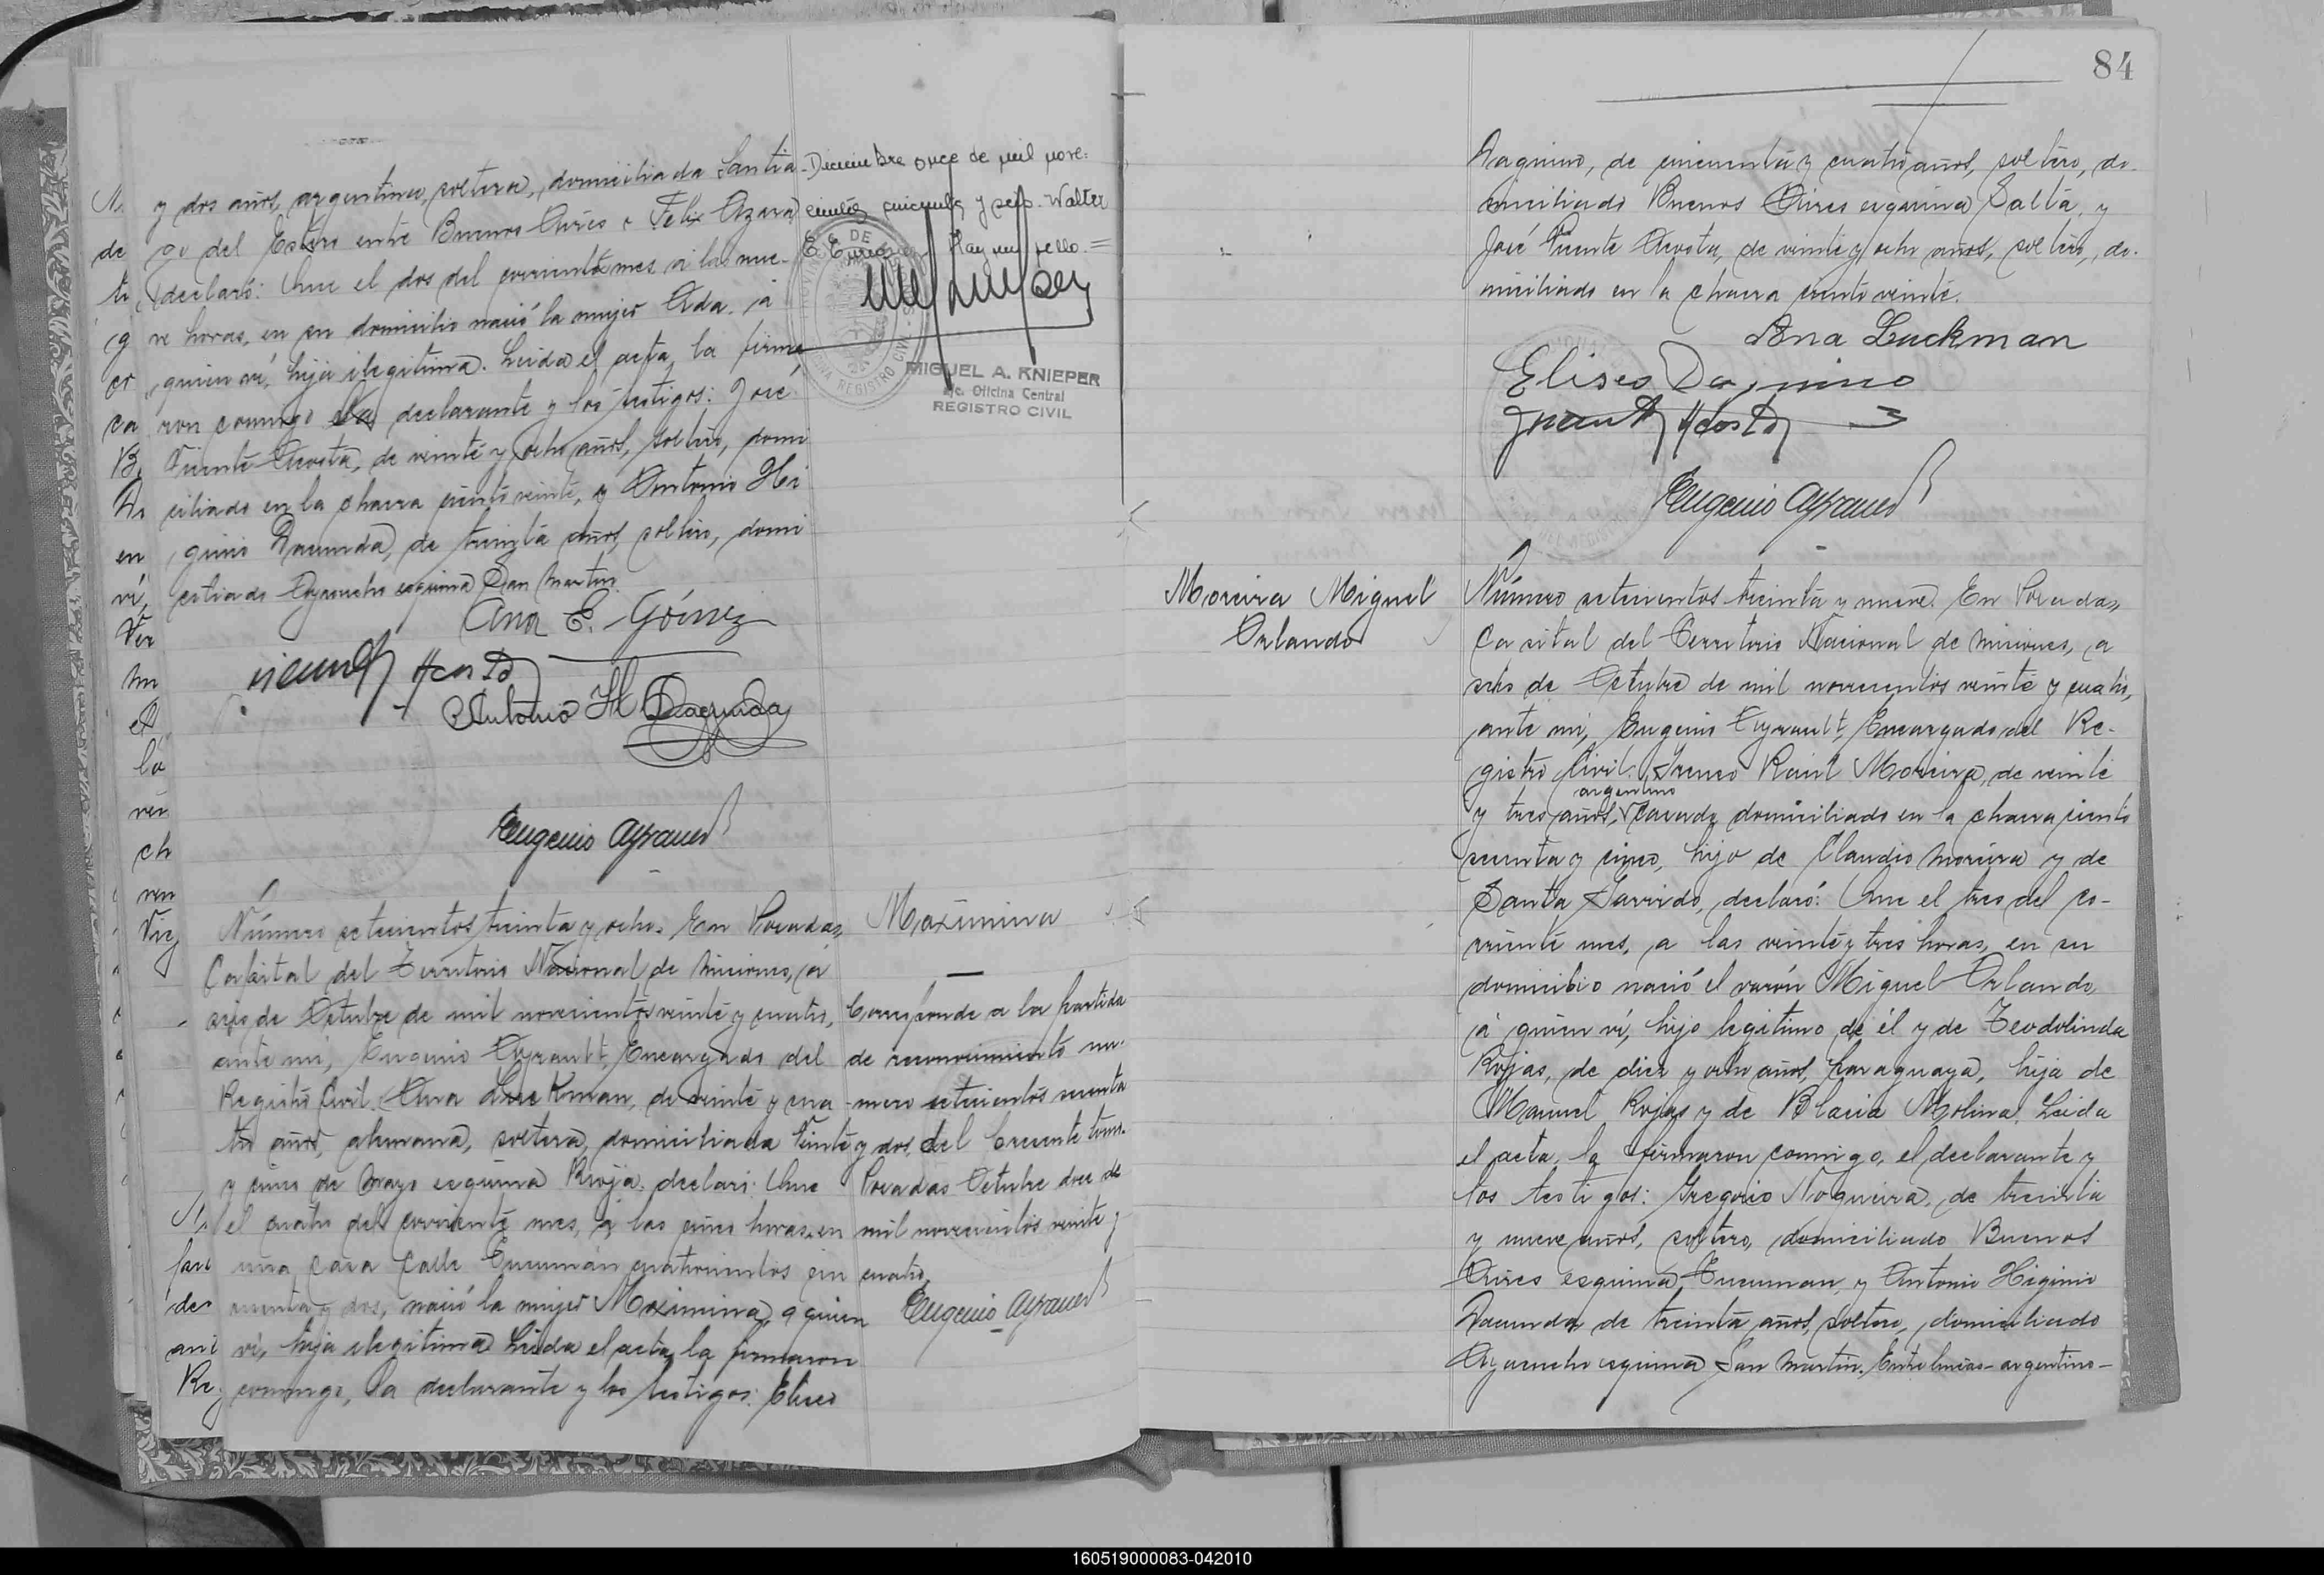 y dos años, argentina, soltera, domiciliada Santia-
go del Estero entre Buenos Aires y Felix Azara,
declaró: Que el dos del corriente mes a las nue-
ve horas, en su domicilio nació la mujer Ada, á
quien ví, hija ilegitima. Leida el acta, la firma
ron conmigo la declarante y los testigos: José
Vicente Acosta, de veinte y ocho años, soltero, domi
ciliado en la chacra ciento veinte, y Antonio Hi
ginio Dacunda, de treinta años, soltero, domi
ciliado Ayacucho esquina San Martin.
Ana E. Gómez
Acosta
Antonio H Dacunda
Eugenio Ayrault
Diciembre once de mil nove-
cientos cincuenta y seis. Walter
E. Hay un sello.=
MIGUEL A. KNIEPER
Oficina Central
REGISTRO CIVIL
Número setecientos treinta y ocho. En Posadas,
Capital del Territorio Nacional de Misiones, a
seis de Octubre de mil novecientos veinte y cuatro,
ante mi, Eugenio Ayrault, Encargado del
Registro Civil. Ana Luckman, de veinte y cua
tro años, alemana, soltera, domiciliada Veinte
y cinco de Mayo esquina Rioja, declaró: Que
el cuatro del corriente mes, a las cinco horas, en
una casa calle Tucumán cuatrocientos cin
cuenta y dos, nació la mujer Maximina, a quien
ví, hija ilegitima Leida el acta, la firmaron
conmigo, la declarante y los testigos: Eliseo
Maximina
Corresponde a la partida
de reconocimiento nú-
mero setecientos
y dos, del
Posadas Octubre doce de
mil novecientos veinte y
cuatro.
Eugenio Ayrault
84
Daquino, de cincuenta y cuatro años, soltero, do-
miciliado Buenos Aires esquina Salta, y
José Vicente Acosta, de veinte y ocho años, soltero, do-
miciliado en la chacra ciento veinte.
Ana Luckman
Eliseo Daquino
Acosta
Eugenio Ayrault
Moreira Miguel
Orlando
Número setecientos treinta y nueve. En Posadas,
Capital del Territorio Nacional de Misiones, a
seis de Octubre de mil novecientos veinte y cuatro,
ante mi, Eugenio Ayrault, Encargado del Re-
gistro Civil. Ireneo Raúl Moreira, de veinte
argentino
y tres años, casado domiciliado en la chacra ciento
y cinco, hijo de Claudio Moreira y de
Santa Garrido, declaró: Que el tres del co-
rriente mes, a las veinte y tres horas, en su
domicilio nació el varón Miguel Orlando,
á quien ví, hijo legitimo de él y de Teodolinda
Rojas, de diez y ocho años, paraguaya, hija de
Manuel Rojas y de Blasia Molina. Leida
el acta, la firmaron conmigo, el declarante y
los testigos: Gregorio Nogueira, de treinta
y nueve años, soltero, domiciliado Buenos
Aires esquina Tucuman, y Antonio Higinio
Dacunda de treinta años, soltero, domiciliado
Ayacucho esquina San Martin. Entre lineas - argentino -
160519000083-042010